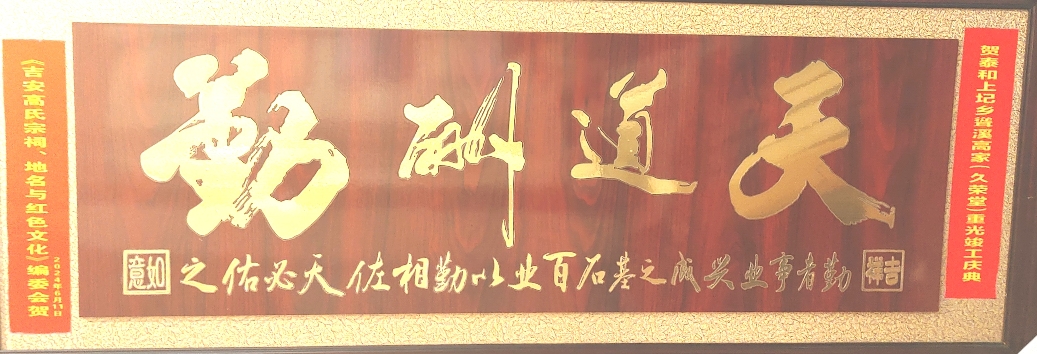 贺泰和上圮乡聳溪高家(久荣堂)重光竣工庆典
天道酬勤
吉祥
勤者事业兴成之基石百业以勤相佐天必佑之
如意
《吉安高氏宗祠、地名与红色文化》编委会贺
2024年6月11日